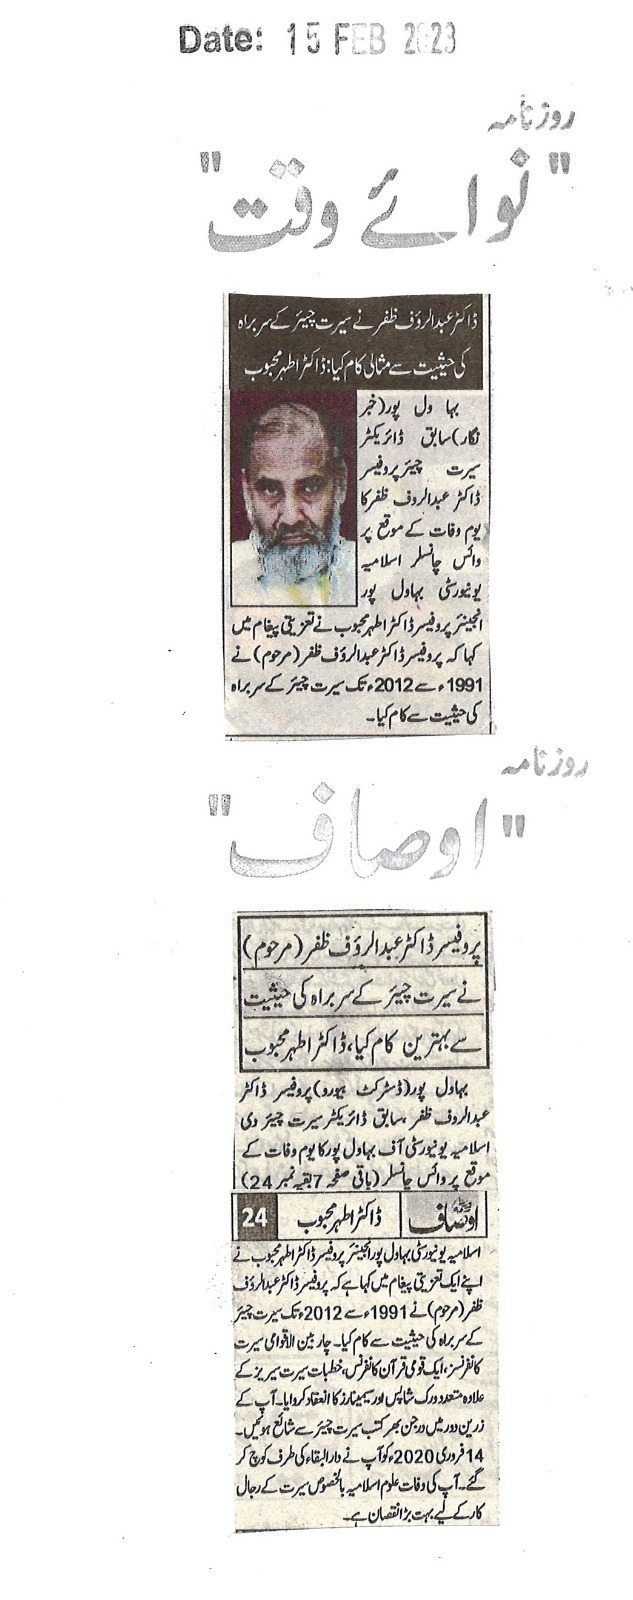 Date: 15 FEB 2023
روزنامہ
"نوائے وقت"
ڈاکٹر عبدالرؤف ظفر نے سیرت چیئر کے سربراہ
کی حیثیت سے مثالی کام کیا: ڈاکٹر اطہر محبوب
بہا ول پور(خبر
نگار)سابق ڈائریکٹر
سیرت چیئر پروفیسر
ڈاکٹر عبدالروف ظفر کا
یوم وفات کے موقع پر
وائس چانسلر اسلامیہ
یونیورسٹی بہاول پور
انجینئر پروفیسر ڈاکٹر اطہر محبوب نے تعزیتی پیغام میں
کہا کہ پروفیسر ڈاکٹر عبدالرؤف ظفر (مرحوم) نے
1991ء سے 2012ء تک سیرت چیئر کے سربراہ
کی حیثیت سے کام کیا۔
روزنامہ
"اوصاف"
پروفیسر ڈاکٹر عبدالرؤف ظفر (مرحوم)
نے سیرت چیئر کے سربراہ کی حیثیت
سے بہترین کام کیا، ڈاکٹر اطہر محبوب
بہاول پور(ڈسٹرکٹ بیورو)پروفیسر ڈاکٹر
عبدالروف ظفر ،سابق ڈائریکٹر سیرت چیئر دی
اسلامیہ یونیورسٹی آف بہاول پور کا یوم وفات کے
موقع پر وائس چانسلر (باقی صفحہ 7 بقیہ نمبر 24)
اوصاف ڈاکٹر اطہر محبوب 24
اسلامیہ یونیورسٹی بہاول پور انجینئر پروفیسر ڈاکٹر اطہر محبوب نے
اپنے ایک تعزیتی پیغام میں کہا ہے کہ پروفیسر ڈاکٹر عبدالرؤف
ظفر (مرحوم) نے 1991ء سے 2012ء تک سیرت چیئر
کے سربراہ کی حیثیت سے کام کیا۔ چار بین الاقوامی سیرت
کانفرنسز، ایک قومی قرآن کانفرنس، خطبات سیرت سیریز کے
علاوہ متعدد ورک شاپس اور سیمینارز کا انعقاد کروایا۔ آپ کے
زریں دور میں درجن بھر کتب سیرت چیئر سے شائع ہوئیں۔
14 فروری 2020ء کو آپ نے دارالبقاء کی طرف کوچ کر
گئے۔ آپ کی وفات علوم اسلامیہ بالخصوص سیرت کے رجال
کار کے لیے بہت بڑا نقصان ہے۔